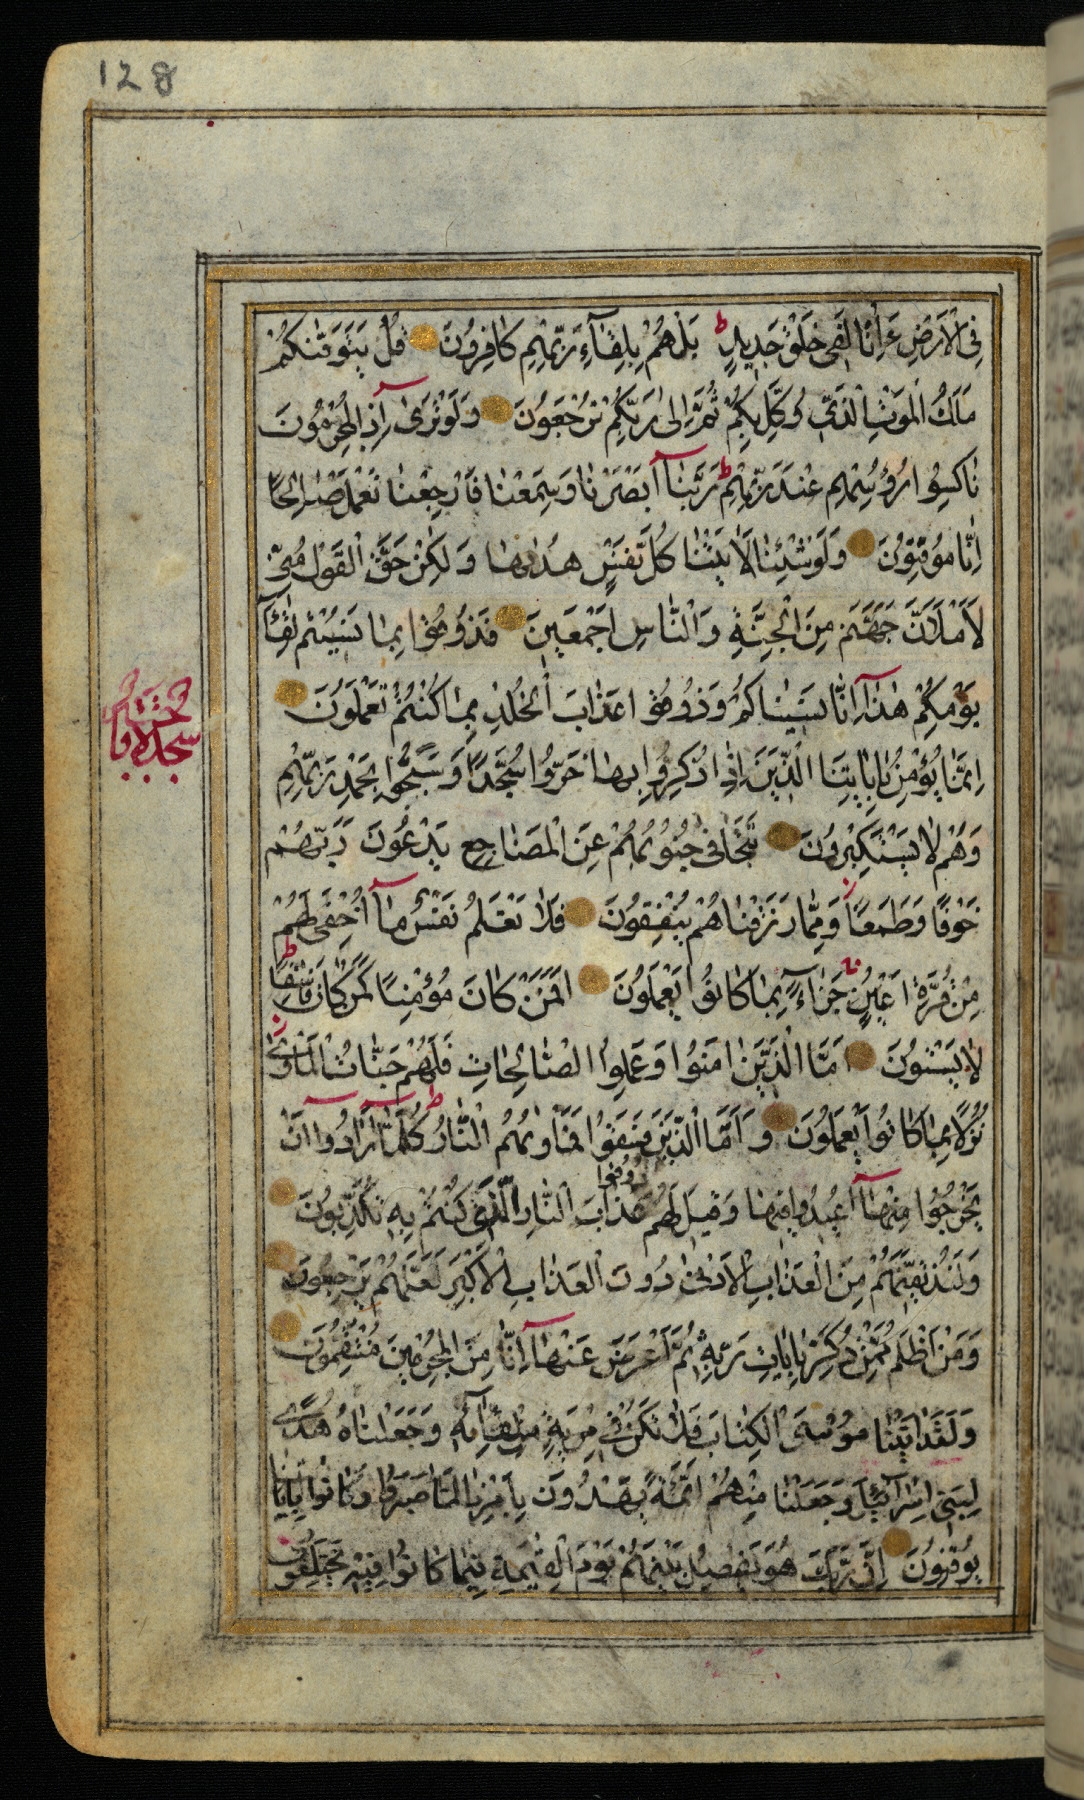 128
فِى الْاَرْضِ ءَاِنَّا لَفِى خَلْقٍ جَدِيدٍ ط بَلْ هُمْ بِلِقَآءِ رَبِّهِمْ كَافِرُونَ قُلْ يَتَوَفّٰىكُمْ
مَلَكُ الْمَوْتِ الَّذِى وُكِّلَ بِكُمْ ثُمَّ اِلٰى رَبِّكُمْ تُرْجَعُونَ وَلَوْ تَرٰى اِذِ الْمُجْرِمُونَ
نَاكِسُوا رُؤُسِهِمْ عِنْدَ رَبِّهِمْ ط رَبَّنَآ اَبْصَرْنَا وَسَمِعْنَا فَارْجِعْنَا نَعْمَلْ صَالِحًا
اِنَّا مُوقِنُونَ وَلَوْ شِئْنَا لَاٰتَيْنَا كُلَّ نَفْسٍ هُدٰيهَا وَلٰكِنْ حَقَّ الْقَوْلُ مِنِّى
لَاَمْلَئَنَّ جَهَنَّمَ مِنَ الْجِنَّةِ وَالنَّاسِ اَجْمَعِينَ فَذُوقُوا بِمَا نَسِيتُمْ لِقَآءَ
يَوْمِكُمْ هٰذَآ اِنَّا نَسِينَاكُمْ وَذُوقُوا عَذَابَ الْخُلْدِ بِمَا كُنْتُمْ تَعْمَلُونَ
اِنَّمَا يُؤْمِنُ بِاٰيَاتِنَا الَّذِينَ اِذَا ذُكِّرُوا بِهَا خَرُّوا سُجَّدًا وَسَبَّحُوا بِحَمْدِ رَبِّهِمْ
سجدة
وَهُمْ لَا يَسْتَكْبِرُونَ تَتَجَافٰى جُنُوبُهُمْ عَنِ الْمَضَاجِعِ يَدْعُونَ رَبَّهُمْ
خَوْفًا وَطَمَعًا وَمِمَّا رَزَقْنَاهُمْ يُنْفِقُونَ فَلَا تَعْلَمُ نَفْسٌ مَآ اُخْفِىَ لَهُمْ
مِنْ قُرَّةِ اَعْيُنٍ جَزَآءً بِمَا كَانُوا يَعْمَلُونَ اَفَمَنْ كَانَ مُؤْمِنًا كَمَنْ كَانَ فَاسِقًا ط
لَا يَسْتَوُنَ اَمَّا الَّذِينَ اٰمَنُوا وَعَمِلُوا الصَّالِحَاتِ فَلَهُمْ جَنَّاتُ الْمَاْوٰى
نُزُلًا بِمَا كَانُوا يَعْمَلُونَ وَاَمَّا الَّذِينَ فَسَقُوا فَمَاْوٰيهُمُ النَّارُ ط كُلَّمَآ اَرَادُوآ اَنْ
يَخْرُجُوا مِنْهَآ اُعِيدُوا فِيهَا وَقِيلَ لَهُمْ ذُوقُوا عَذَابَ النَّارِ الَّذِى كُنْتُمْ بِهِ تُكَذِّبُونَ
وَلَنُذِيقَنَّهُمْ مِنَ الْعَذَابِ الْاَدْنٰى دُونَ الْعَذَابِ الْاَكْبَرِ لَعَلَّهُمْ يَرْجِعُونَ
وَمَنْ اَظْلَمُ مِمَّنْ ذُكِّرَ بِاٰيَاتِ رَبِّهِ ثُمَّ اَعْرَضَ عَنْهَآ اِنَّا مِنَ الْمُجْرِمِينَ مُنْتَقِمُونَ
وَلَقَدْ اٰتَيْنَا مُوسَى الْكِتَابَ فَلَا تَكُنْ فِى مِرْيَةٍ مِنْ لِقَآئِهِ وَجَعَلْنَاهُ هُدًى
لِبَنِى اِسْرَآئِيلَ وَجَعَلْنَا مِنْهُمْ اَئِمَّةً يَهْدُونَ بِاَمْرِنَا لَمَّا صَبَرُوا وَكَانُوا بِاٰيَاتِنَا
يُوقِنُونَ اِنَّ رَبَّكَ هُوَ يَفْصِلُ بَيْنَهُمْ يَوْمَ الْقِيٰمَةِ فِيمَا كَانُوا فِيهِ يَخْتَلِفُونَ